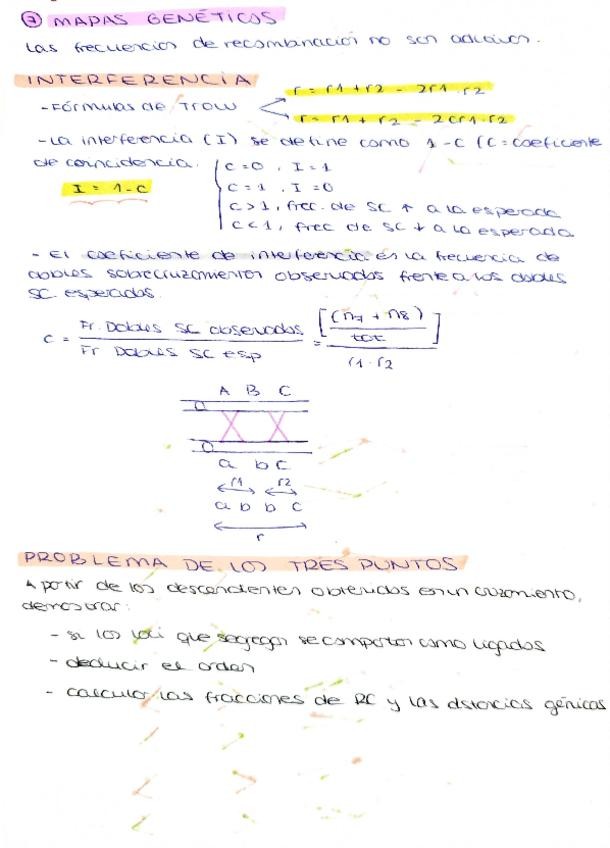 ⑦ MAPAS GENÉTICOS
Las frecuencias de recombinación no son aditivas.
INTERFERENCIA
- Fórmulas de Trow
r = r1 + r2 - 2r1·r2
r = r1 + r2 - 2cr1·r2
- La interferencia (I) se define como 1-C (C = coeficiente
de coincidencia.
I = 1-C
C = 0, I = 1
C = 1, I = 0
C > 1, frec. de SC ↑ a la esperada
C < 1, frec de SC ↓ a la esperada
- El coeficiente de interferencia es la frecuencia de
dobles sobrecruzamientos observados frente a los dobles
SC esperados.
C = Fr. Dobles SC observados / Fr Dobles SC esp = [(n7 + n8) / tot] / r1·r2
A B C
a b C
r1 r2
a b b c
r
PROBLEMA DE LOS TRES PUNTOS
A partir de los descendientes obtenidos en un cruzamiento,
demostrar:
- si los loci que segregan se comportan como ligados
- deducir el orden
- calcular las fracciones de RC y las distancias génicas